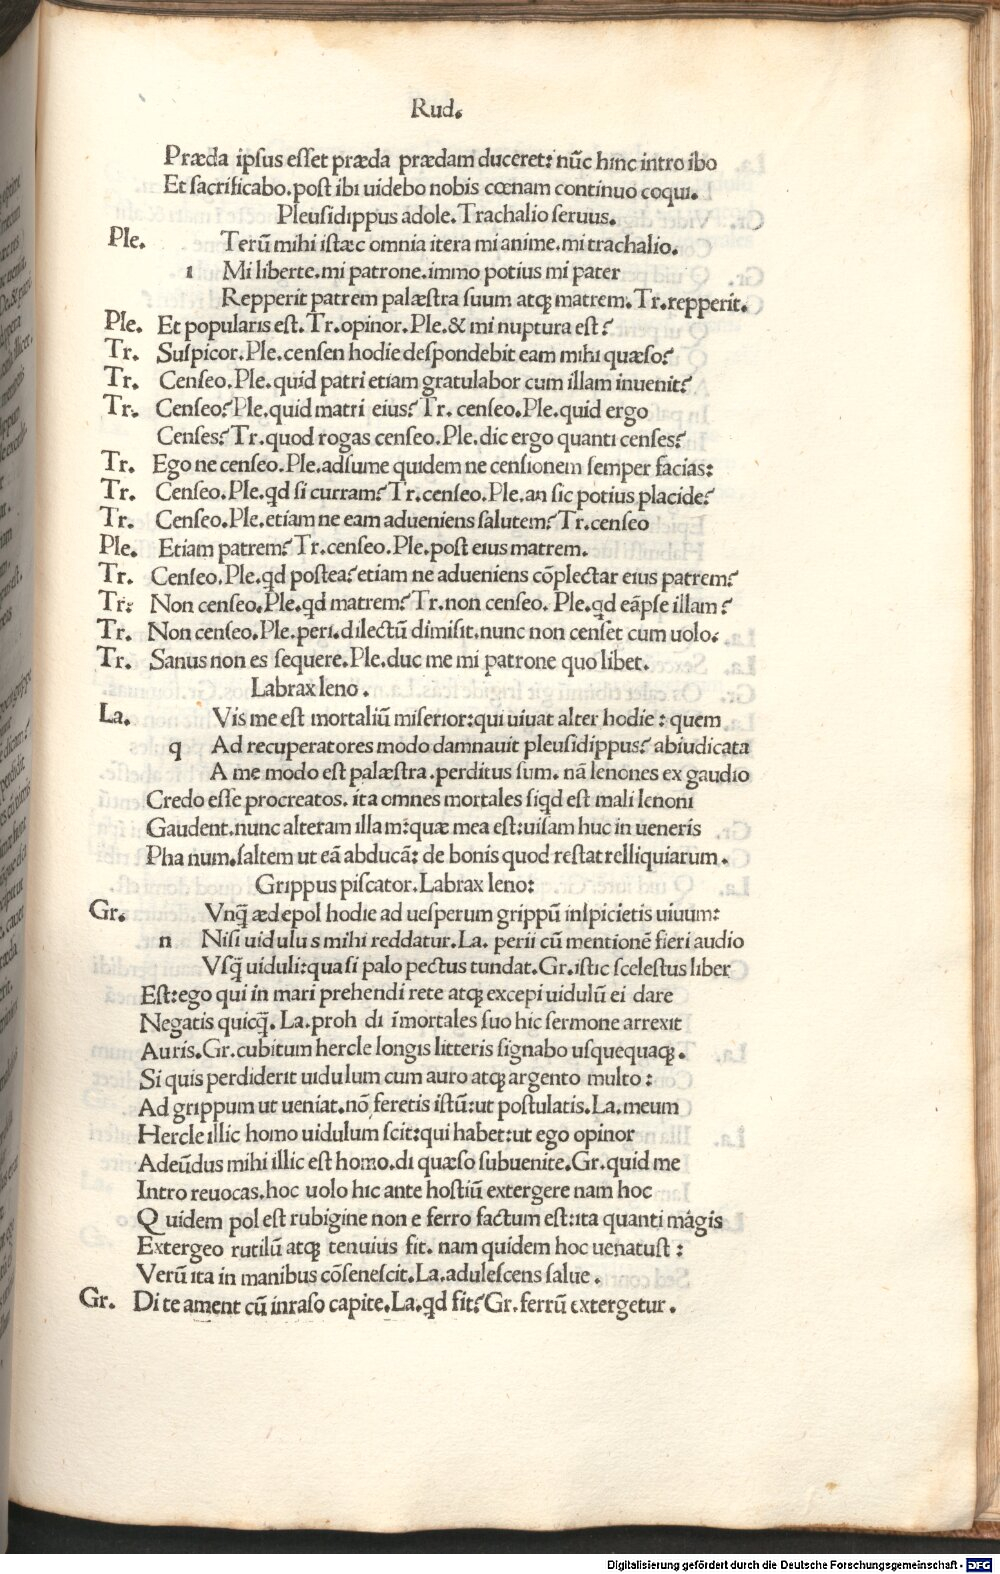 Rud.
Præda ipsus esset præda prædam duceret: nūc hinc intro ibo
Et sacrificabo. post ibi uidebo nobis cœnam continuo coqui.
Pleusidippus adole. Trachalio seruus.
Ple. Terū mihi istæc omnia itera mi anime. mi trachalio.
i Mi liberte. mi patrone. immo potius mi pater
Repperit patrem palæstra suum atqꝫ matrem. Tr. repperit.
Ple. Et popularis est. Tr. opinor. Ple. & mi nuptura est?
Tr. Suspicor. Ple. censen hodie despondebit eam mihi quæso?
Tr. Censeo. Ple. quid patri etiam gratulabor cum illam inuenit?
Tr. Censeo? Ple. quid matri eius? Tr. censeo. Ple. quid ergo
Censes? Tr. quod rogas censeo. Ple. dic ergo quanti censes?
Tr. Ego ne censeo. Ple. adsume quidem ne censionem semper facias:
Tr. Censeo. Ple. qd si curram? Tr. censeo. Ple. an sic potius placide?
Tr. Censeo. Ple. etiam ne eam adueniens salutem? Tr. censeo
Ple. Etiam patrem? Tr. censeo. Ple. post eius matrem.
Tr. Censeo. Ple. qd postea? etiam ne adueniens cōplectar eius patrem?
Tr: Non censeo. Ple. qd matrem? Tr. non censeo. Ple. qd eāpse illam?
Tr. Non censeo. Ple. peri. dilectū dimisit. nunc non censet cum uolo.
Tr. Sanus non es sequere. Ple. duc me mi patrone quo libet.
Labrax leno.
La. Vis me est mortaliū miserior: qui uiuat alter hodie: quem
q Ad recuperatores modo damnauit pleusidippus? abiudicata
A me modo est palæstra. perditus sum. nā lenones ex gaudio
Credo esse procreatos. ita omnes mortales siqd est mali lenoni
Gaudent. nunc alteram illam: quæ mea est: uisam huc in ueneris
Pha num. saltem ut eā abducā: de bonis quod restat relliquiarum.
Grippus piscator. Labrax leno:
Gr. Vnq̄ ædepol hodie ad uesperum grippū inspicietis uiuum:
n Nisi uidulu s mihi reddatur. La. perii cū mentionē fieri audio
Vsq̄ uiduli: quasi palo pectus tundat. Gr. istic scelestus liber
Est: ego qui in mari prehendi rete atqꝫ excepi uidulū ei dare
Negatis quicq̄. La. proh di īmortales suo hic sermone arrexit
Auris. Gr. cubitum hercle longis litteris signabo usquequaqꝫ.
Si quis perdiderit uidulum cum auro atqꝫ argento multo:
Ad grippum ut ueniat. nō feretis istū: ut postulatis. La. meum
Hercle illic homo uidulum scit: qui habet: ut ego opinor
Adeūdus mihi illic est homo. di quæso subuenite. Gr. quid me
Intro reuocas. hoc uolo hic ante hostiū extergere nam hoc
Quidem pol est rubigine non e ferro factum est: ita quanti magis
Extergeo rutilū atqꝫ tenuius fit. nam quidem hoc uenatust:
Verū ita in manibus cōsenescit. La. adulescens salue.
Gr. Di te ament cū inraso capite. La. qd fit? Gr. ferrū extergetur.
Digitalisierung gefördert durch die Deutsche Forschungsgemeinschaft - DFG